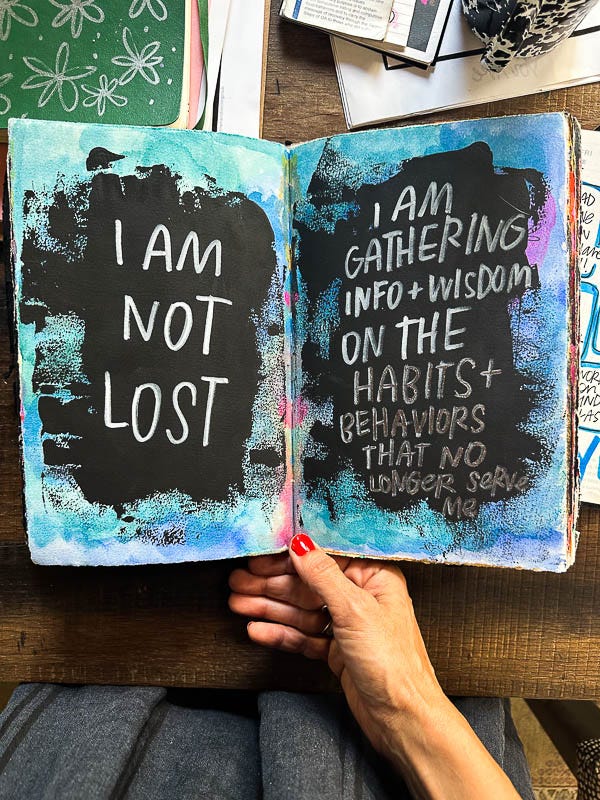 I AM
NOT
LOST
I AM
GATHERING
INFO + WISDOM
ON THE
HABITS +
BEHAVIORS
THAT NO
LONGER SERVE
ME